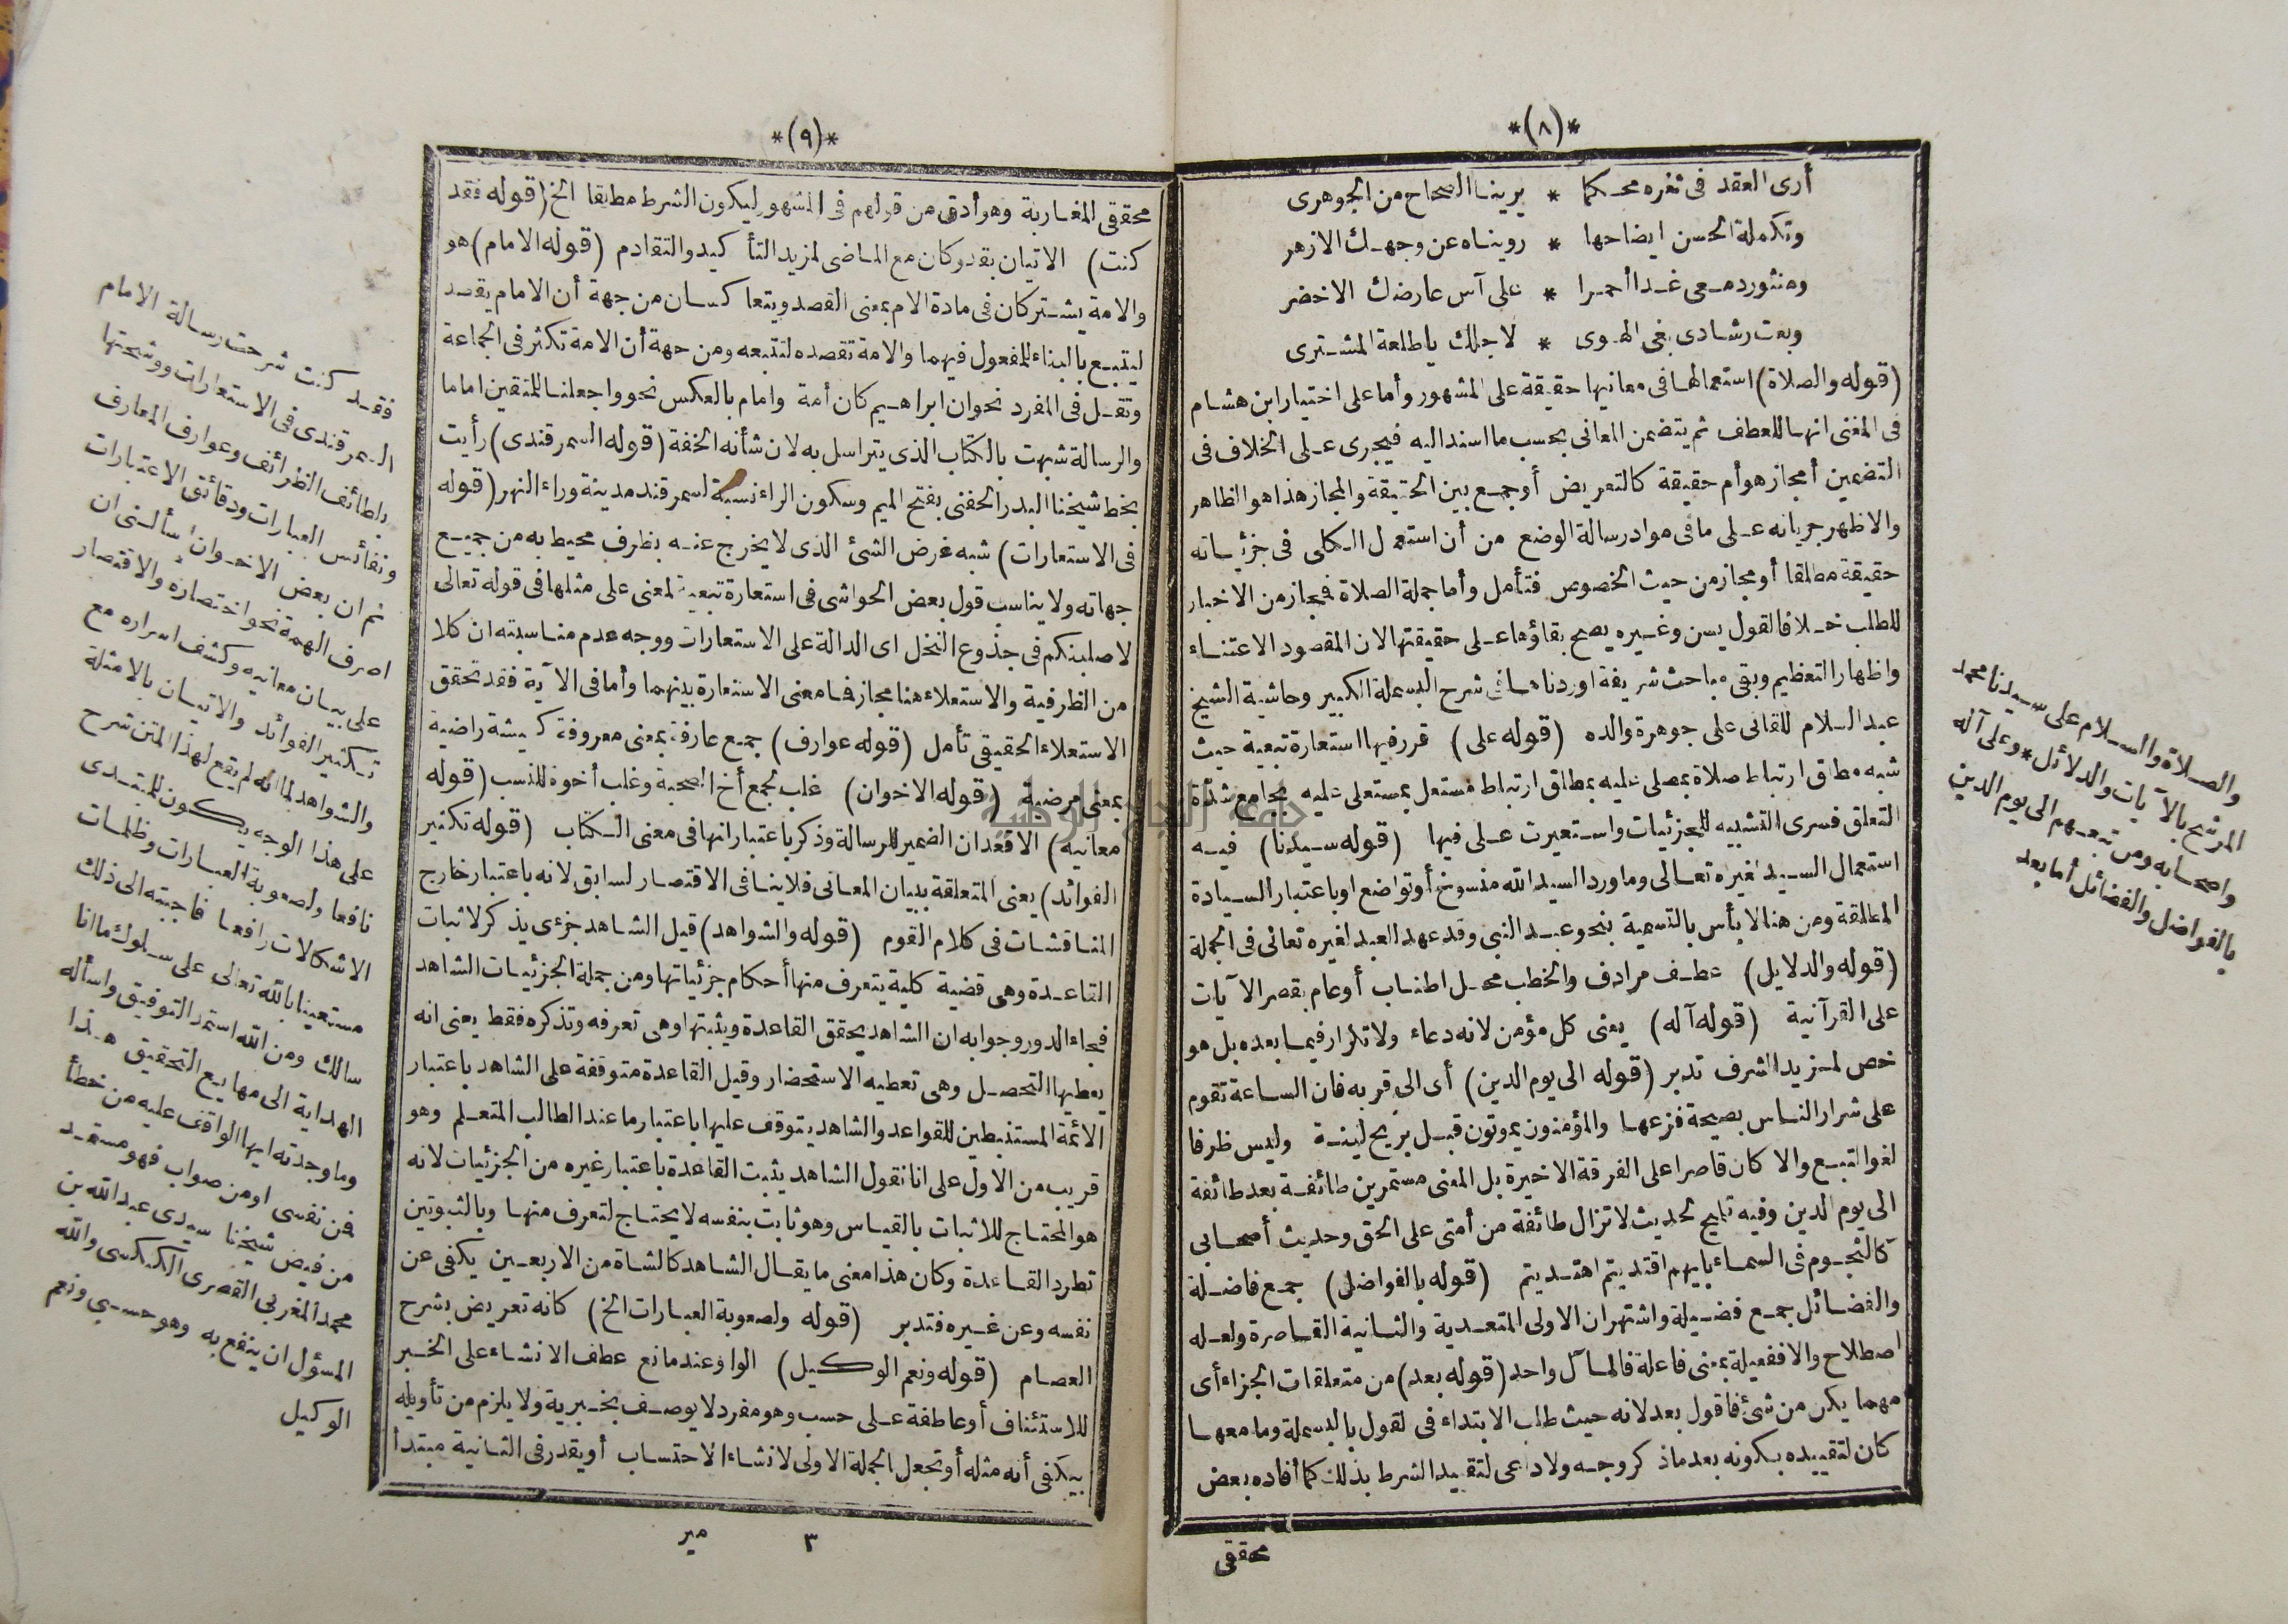 *(٨)*
أرى العقد فى ثغره محكما * يرينا الصحاح من الجوهرى
وتكملة الحسن ايضاحها * رويناه عن وجهك الازهر
ومنثور دمعى غدا أحمرا * على آس عارضك الاخضر
وبعت رشادى بغى الهوى * لاجلك ياطلعة المشترى
(قوله والصلاة) استعمالها فى معانيها حقيقة على المشهور وأما على اختيار ابن هشام
فى المغنى انها للعطف ثم يتضمن المعانى بحسب ما اسند اليه فيجرى على الخلاف فى
التضمين أمجاز هو أم حقيقة كالتعريض أوجمع بين الحقيقة والمجاز هذا هو الظاهر
والاظهر جريانه على ما فى مواد رسالة الوضع من أن استعمل الكلى فى جزئياته
حقيقة مطلقا أو مجاز من حيث الخصوص فتأمل وأما جملة الصلاة فمجاز من الاخبار
للطلب خلافا لقول يسن وغيره يصح بقاؤها على حقيقتها الان المقصود الاعتناء
واظهار التعظيم وبقى مباحث شريفة اوردناها فى شرح البسملة الكبير وحاشية الشيخ
عبد السلام اللقانى على جوهرة والده (قوله على) قرر فيها استعارة تبعية حيث
شبه مطلق ارتباط صلاة بمصلى عليه بمطلق ارتباط مستعل بمستعلى عليه بجامع شدة
التعلق فسرى التشبيه للجزئيات واستعيرت على فيها (قوله سيدنا) فيه
استعمال السيد لغيره تعالى وما ورد السيد الله منسوخ أو تواضع او باعتبار السيادة
المطلقة ومن هنا لا بأس بالتسمية بنحو عبد النبى وقد عهد العبد لغيره تعالى فى الجملة
(قوله والدلايل) عطف مرادف والخطب محل اطناب أو عام بقصر الآيات
على القرآنية (قوله آله) يعنى كل مؤمن لانه دعاء ولا تكرار فيما بعده بل هو
خص لمزيد الشرف تدبر (قوله الى يوم الدين) أى الى قربه فان الساعة تقوم
على شرار الناس بصيحة فزعها والمؤمنون يموتون قبل بريح لينة وليس ظرفا
لغوا لتبع والا كان قاصرا على الفرقة الاخيرة بل المعنى مستمرين طائفة بعد طائفة
الى يوم الدين وفيه تلميح لحديث لا تزال طائفة من أمتى على الحق وحديث أصحابى
كالنجوم فى السماء بايهم اقتديتم اهتديتم (قوله بالفواضل) جمع فاضلة
والفضائل جمع فضيلة واشتهر ان الاولى المتعدية والثانية القاصرة ولعله
اصطلاح والا ففعيلة بمعنى فاعلة فالمآل واحد (قوله بعد) من متعلقات الجزاء أى
مهما يكن من شئ فاقول بعد لانه حيث طلب الابتداء فى لقول بالبسملة وما معها
كان لتقييده بكونه بعد ما ذكر وجه ولا داعى لتقييد الشرط بذلك كما أفاده بعض
محققى
والصلاة والسلام على سيدنا محمد
المرشح بالآيات والدلائل * وعلى آله
واصحابه ومن تبعهم الى يوم الدين
بالفواضل والفضائل أما بعد
*(٩)*
محققى المغاربة وهو أدق من قولهم فى المشهور ليكون الشرط مطابقا الخ (قوله فقد
كنت) الاتيان بقد وكان مع الماضى لمزيد التأكيد والتقادم (قوله الامام) هو
والامة يشتركان فى مادة الام بمعنى القصد ويتعاكسان من جهة أن الامام يقصد
ليتبع بالبناء للمفعول فيهما والامة تقصده لتتبعه ومن جهة أن الامة تكثر فى الجماعة
وتقل فى المفرد نحو ان ابراهيم كان أمة وامام بالعكس نحو واجعلنا للمتقين اماما
والرسالة شبهت بالكتاب الذى يتراسل به لان شأنه الخفة (قوله السمرقندى) رأيت
بخط شيخنا البدر الحفنى بفتح الميم وسكون الراء نسبة لسمرقند مدينة وراء النهر (قوله
فى الاستعارات) شبه غرض الشئ الذى لا يخرج عنه بظرف محيط به من جميع
جهاته ولا يناسب قول بعض الحواشى فى استعارة تبعية لمعنى على مثلها فى قوله تعالى
لاصلبنكم فى جذوع النخل اى الدالة على الاستعارات ووجه عدم مناسبته ان كلا
من الظرفية والاستعلاء هنا مجاز فما معنى الاستعارة بينهما وأما فى الآية فقد تحقق
الاستعلاء الحقيقى تأمل (قوله عوارف) جمع عارفة بمعنى معروفة كعيشة راضية
بمعنى مرضية (قوله الاخوان) غلب لجمع أخ الصحبة وغلب أخوة للنسب (قوله
معانيه) الاقعد ان الضمير للرسالة وذكر باعتبار انها فى معنى الكتاب (قوله تكثير
الفوائد) يعنى المتعلقة ببيان المعانى فلا ينافى الاقتصار لسابق لانه باعتبار خارج
المناقشات فى كلام القوم (قوله والشواهد) قيل الشاهد جزئى يذكر لاثبات
القاعدة وهى قضية كلية يتعرف منها أحكام جزئياتها ومن جملة الجزئيات الشاهد
فجاء الدور وجوابه ان الشاهد يحقق القاعدة ويثبتها وهى تعرفه وتذكره فقط يعنى انه
يعطيها التحصل وهى تعطيه الاستحضار وقيل القاعدة متوقفة على الشاهد باعتبار
الائمة المستنبطين للقواعد والشاهد يتوقف عليها باعتبار ما عند الطالب المتعلم وهو
قريب من الاول على انا نقول الشاهد يثبت القاعدة باعتبار غيره من الجزئيات لانه
هو المحتاج للاثبات بالقياس وهو ثابت بنفسه لا يحتاج لتعرف منها وبالثبوتين
تطرد القاعدة وكان هذا معنى ما يقال الشاهد كالشاة من الاربعين يكفى عن
نفسه وعن غيره فتدبر (قوله ولصعوبة العبارات الخ) كانه تعريض بشرح
العصام (قوله ونعم الوكيل) الواو عند مانع عطف الانشاء على الخبر
للاستئناف أو عاطفة على حسب وهو مفرد لا يوصف بخبرية ولا يلزم من تأويله
بيكفى أنه مثله أو تجعل الجملة الاولى لانشاء الاحتساب أو يقدر فى الثانية مبتدأ
٣ مير
فقد كنت شرحت رسالة الامام
السمرقندى فى الاستعارات ووشحتها
بلطائف الظرائف وعوارف المعارف
ونفائس العبارات ودقائق الاعتبارات
ثم ان بعض الاخوان سألنى ان
اصرف الهمة نحو اختصاره والاقتصار
على بيان معانيه وكشف اسراره مع
تكثير الفوائد والاتيان بالامثلة
والشواهد لما انه لم يقع لهذا المتن شرح
على هذا الوجه يكون للمبتدى
نافعا ولصعوبة العبارات وظلمات
الاشكالات رافعا فاجبته الى ذلك
مستعينا بالله تعالى على سلوك ما انا
سالك ومن الله استمد التوفيق واسأله
الهداية الى مهايع التحقيق هذا
وما وجدته ايها الواقف عليه من خطأ
فمن نفسى او من صواب فهو مستفد
من فيض شيخنا سيدى عبد الله بن
محمد المغربى القصرى الكنكسى والله
المسؤل ان ينفع به وهو حسبى ونعم
الوكيل